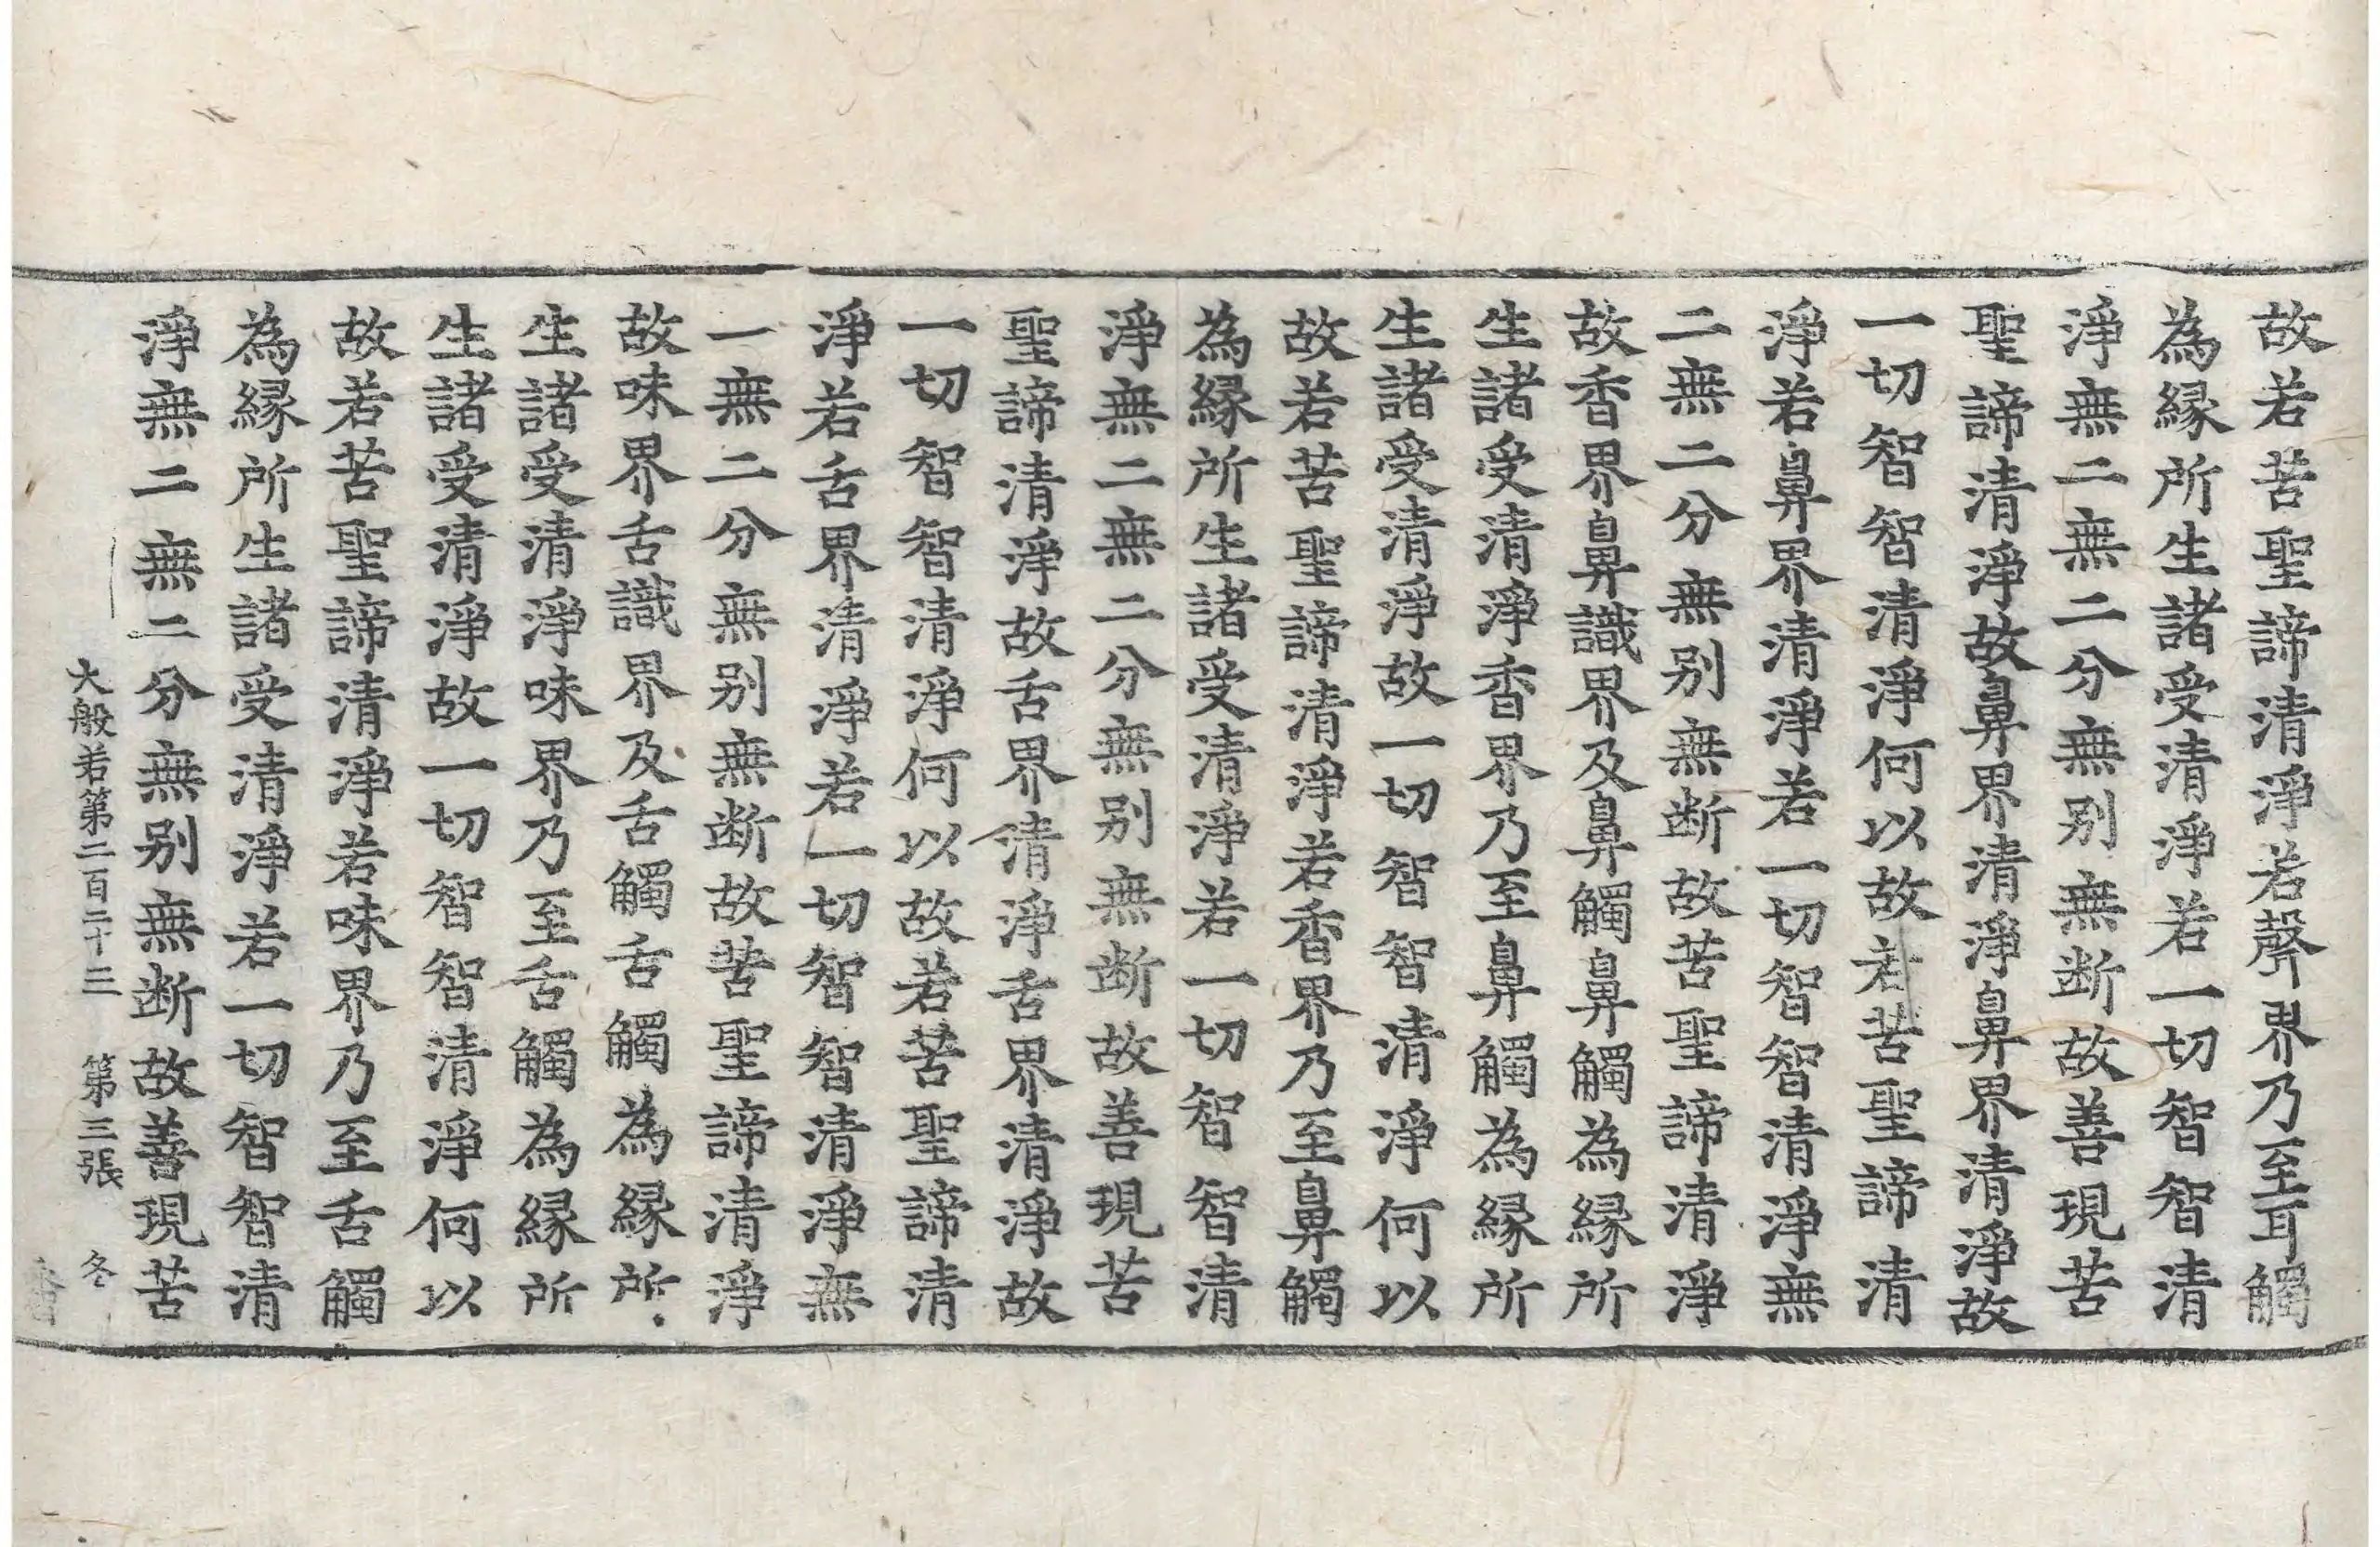 故若苦聖諦清淨若聲界乃至耳觸
為縁所生諸受清淨若一切智智清
淨無二無二分無别無断故善現苦
聖諦清淨故鼻界清淨鼻界清淨故
一切智智清淨何以故若苦聖諦清
淨若鼻界清淨若一切智智清淨無
二無二分無别無断故苦聖諦清淨
故香界鼻識界及鼻觸鼻觸為縁所
生諸受清淨香界乃至鼻觸為縁所
生諸受清淨故一切智智清淨何以
故若苦聖諦清淨若香界乃至鼻觸
為縁所生諸受清淨若一切智智清
淨無二無二分無别無断故善現苦
聖諦清淨故舌界清淨舌界清淨故
一切智智清淨何以故若苦聖諦清
淨若舌界清淨若一切智智清淨無
一無二分無别無断故苦聖諦清淨
故味界舌識界及舌觸舌觸為縁所
生諸受清淨味界乃至舌觸為縁所
生諸受清淨故一切智智清淨何以
故若苦聖諦清淨若味界乃至舌觸
為縁所生諸受清淨若一切智智清
淨無二無二分無别無断故善現苦
大般若第二百二十三 第三張 冬